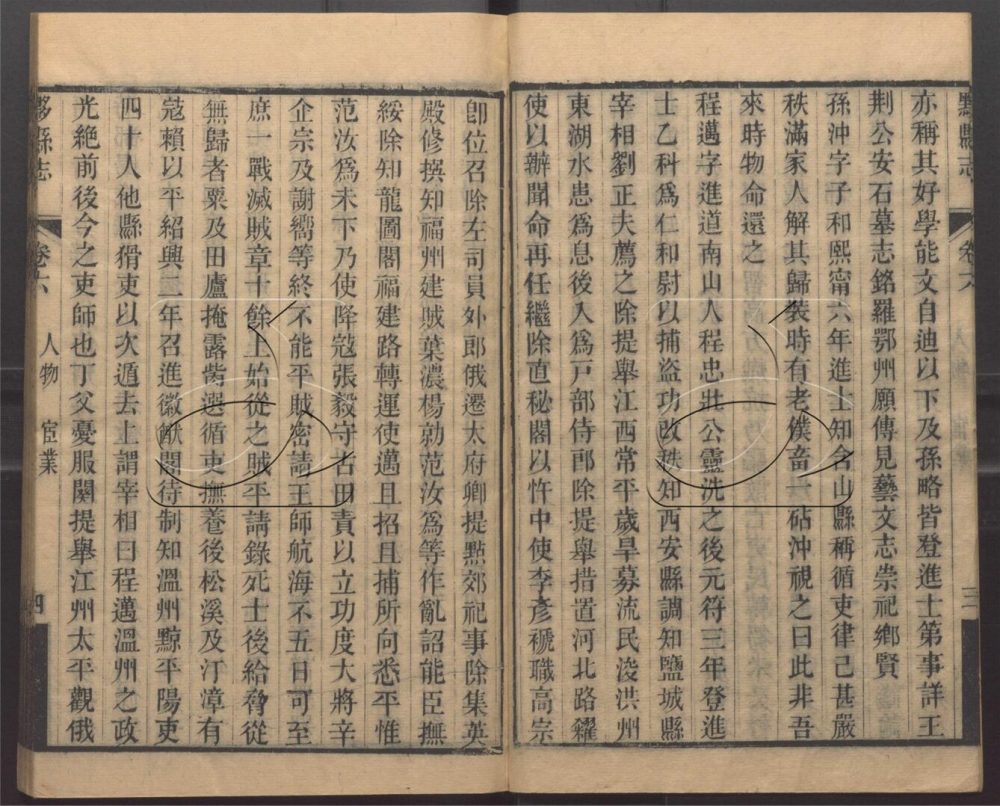 黟縣志
卷六
三
亦稱其好學能文自迪以下及孫略皆登進士第事詳王
荆公安石墓志銘羅鄂州願傳見藝文志崇祀鄉賢
孫沖字子和熙甯六年進士知含山縣稱循吏律己甚嚴
秩滿家人解其歸裝時有老僕畜一砧沖視之曰此非吾
來時物命還之
程邁字進道南山人程忠壯公靈洗之後元符三年登進
士乙科爲仁和尉以捕盗功改秩知西安縣調知鹽城縣
宰相劉正夫薦之除提舉江西常平歲旱募流民浚洪州
東湖水患爲息後入爲戸部侍郎除提舉措置河北路糴
使以辦聞命再任繼除直秘閣以忤中使李彦褫職高宗
卽位召除左司員外郎俄遷太府卿提點郊祀事除集英
殿修撰知福州建賊葉濃楊勍范汝爲等作亂詔能臣撫
綏除知龍圖閣福建路轉運使邁且招且捕所向悉平惟
范汝爲未下乃使降寇張毅守古田責以立功度大將辛
企宗及謝嚮等終不能平賊密請王師航海不五日可至
庶一戰滅賊章十餘上始從之賊平請錄死士後給脅從
無歸者粟及田廬掩露胔選循吏撫養後松溪及汀漳有
寇賴以平紹興二年召進徽猷閣待制知溫州黥平陽吏
四十人他縣猾吏以次遁去上謂宰相曰程邁溫州之政
光絶前後今之吏師也丁父憂服闋提舉江州太平觀俄
黟縣志
卷六
人物
宦業
四